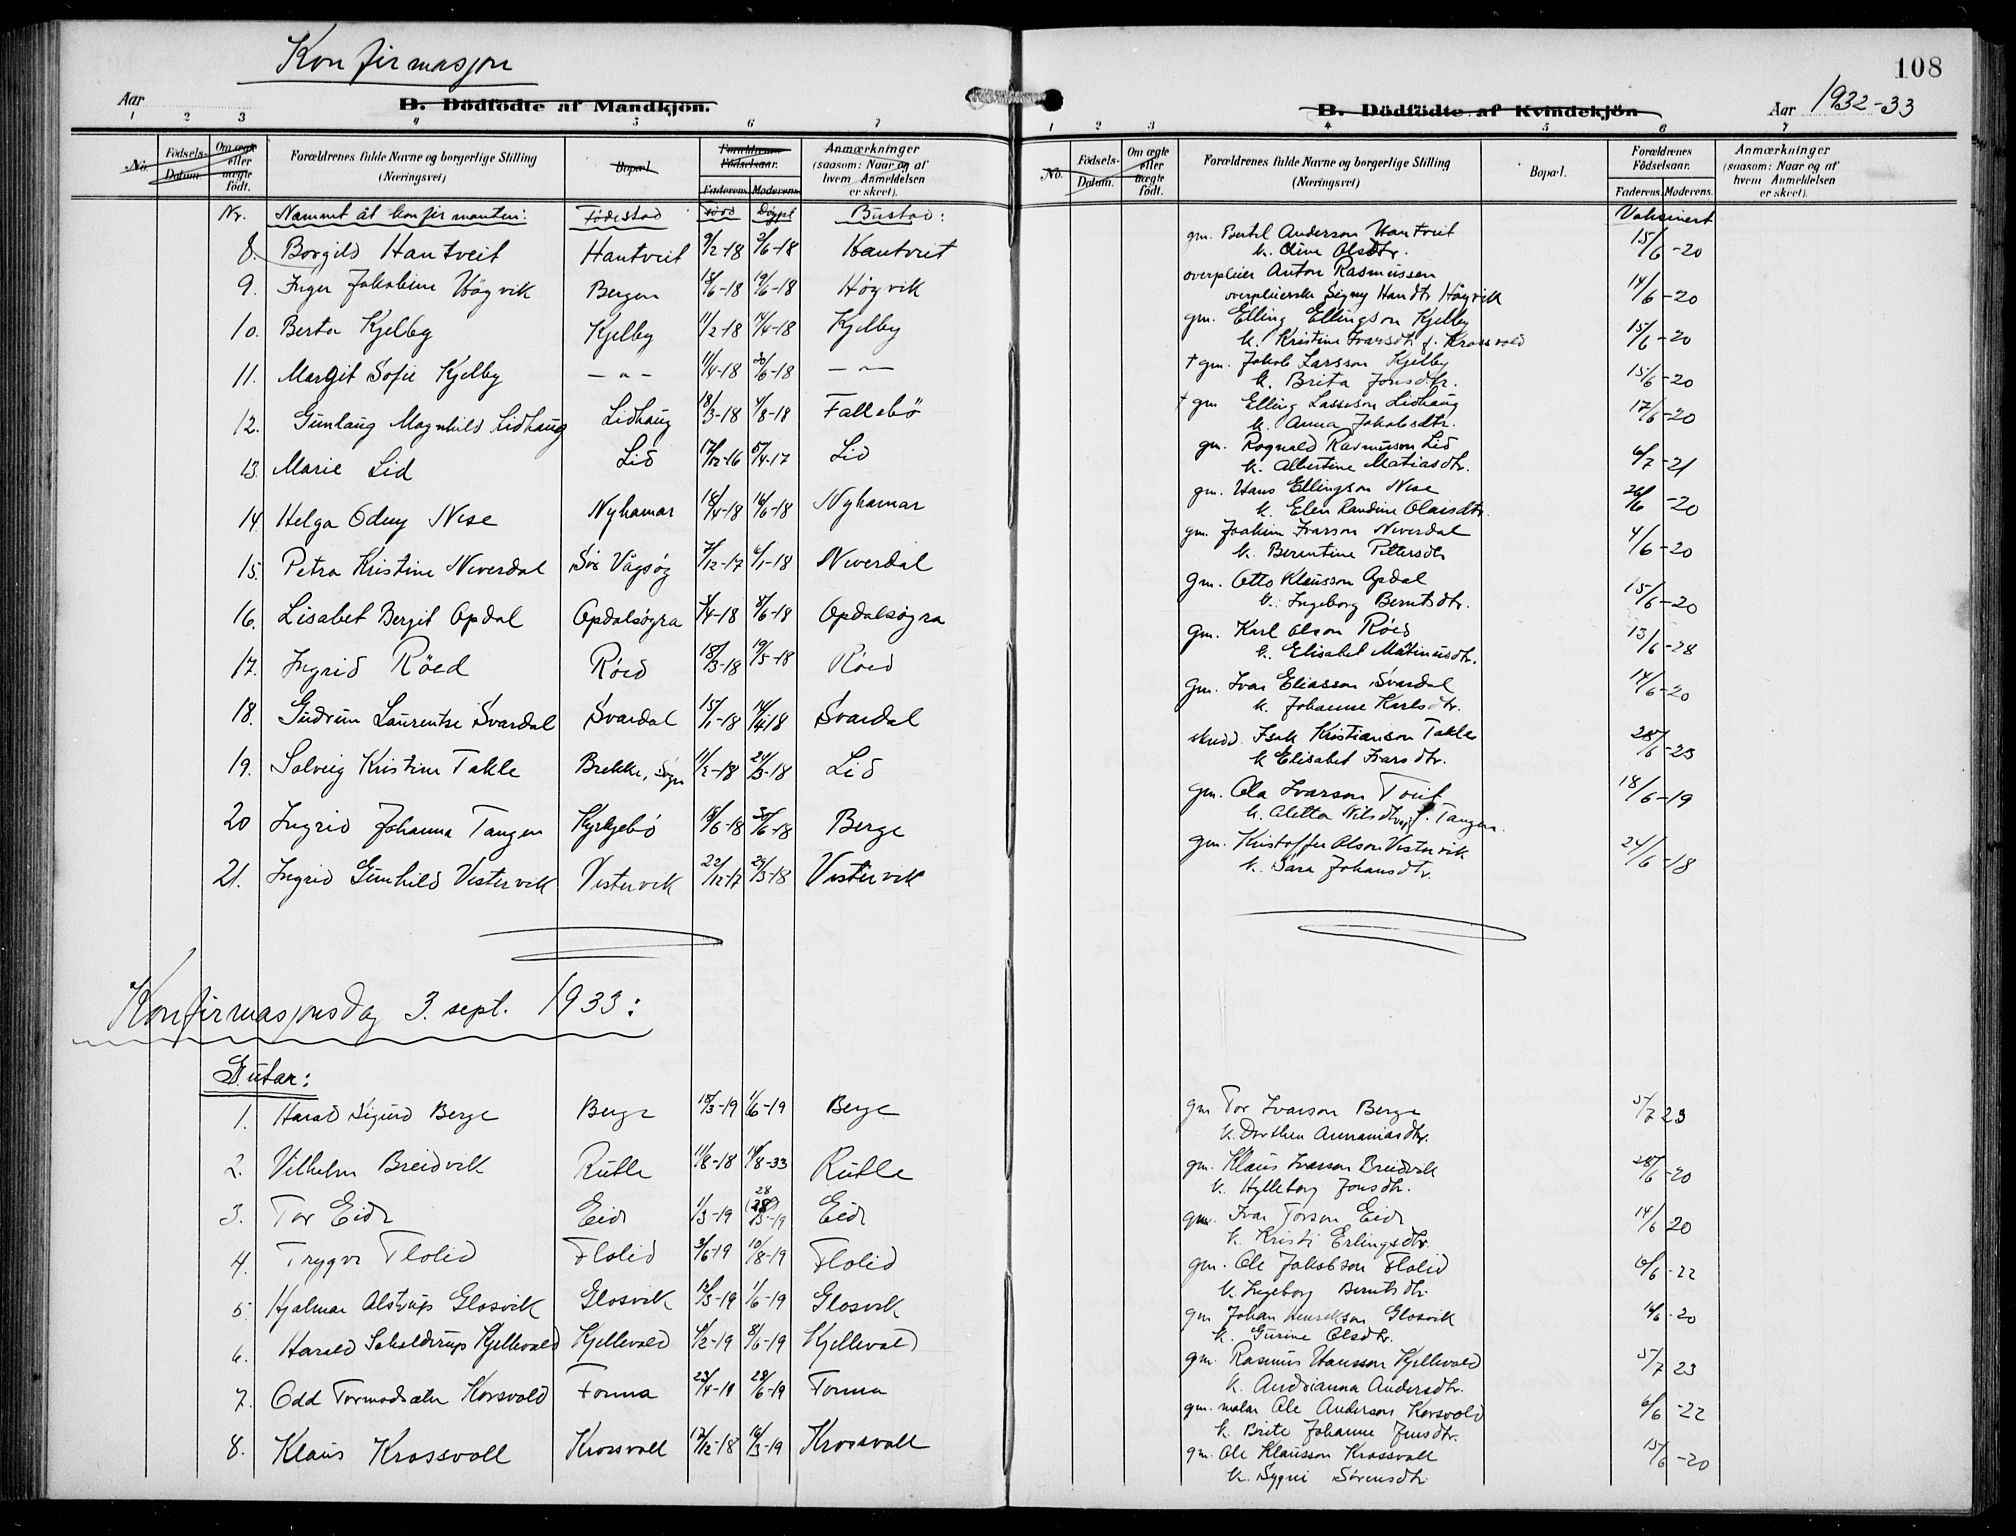 Konfirmasjon
Aar
B. Dödfödte af Mandkjön.
1 2 3 4 5 6 7
No.
Födsels-
Datum.
Om ægte
eller
uægte
födt.
Forældrenes fulde Navne og borgerlige Stilling
(Næringsvei)
Bopæl.
Forældrenes
Födselsaar.
Faderens. Moderens.
Anmærkninger
(saasom: Naar og af
hvem Anmeldelsen
er skeet).
Nr. Namnet åt konfirmanten: Fødestad Fødd Døypt Bustad:
8. Borgild Hantveit Hantveit 9/2-18 2/6-18 Hantveit
9. Inger Jakobine Høgvik Bergen 13/6-18 19/6-18 Høgvik
10. Berta Kjelby Kjelby 11/2-18 14/4-18 Kjelby
11. Margit Sofie Kjelby — " — 11/4-18 30/6-18 — " —
12. Gunlaug Magnhild Lidhaug Lidhaug 18/3-18 4/8-18 Fallebö
13. Marie Lid Lid 17/12-16 5/4-17 Lid
14. Helga Odny Nese Nyhamar 18/4-18 16/6-18 Nyhamar
15. Petra Kristine Neverdal Sør Vågsøy 7/12-17 6/1-18 Neverdal
16. Lisabet Bergit Opdal Opdalsøyra 3/4-18 8/6-18 Opdalsøyra
17. Ingrid Röed Röed 18/3-18 19/5-18 Röed
18. Gudrun Laurentse Svardal Svardal 15/1-18 14/4-18 Svardal
19. Solveig Kristine Takle Brekke, Sogn 11/2-18 24/3-18 Lid
20 Ingrid Johanna Tangen Kyrkjebö 18/6-18 30/6-18 Berge
21. Ingrid Gunhild Vestervik Vestervik 22/12-17 29/3-18 Vestervik
Konfirmasjonsdag 3. sept. 1933:
Gutar:
1. Harald Sigurd Berge Berge 18/3-19 1/6-19 Berge
2. Vilhelm Breidvik Rutle 11/8-18 14/8-33 Rutle
3. Tor Eide Eide 1/3-19 28 Eide
4. Trygve Flolid Flolid 3/6-19 10/8-19 Flolid
5. Hjalmar Alstrup Glosvik Glosvik 12/3-19 1/6-19 Glosvik
6. Harald Schelderup Kjellevold Kjellevold 4/2-19 8/6-19 Kjellevold
7. Odd Tormodsæter Korsvold Fonna 23/4-19 28/6-19 Fonna
8. Klaus Krossvoll Krossvoll 17/12-18 16/3-19 Krossvoll
108
B. Dödfödte af Kvindekjön
Aar 1932-33
1 2 3 4 5 6 7
No.
Födsels-
Datum.
Om ægte
eller
uægte
födt.
Forældrenes fulde Navne og borgerlige Stilling
(Næringsvei)
Bopæl.
Forældrenes
Födselsaar.
Faderens. Moderens.
Anmærkninger
(saasom: Naar og af
hvem Anmeldelsen
er skeet).
Vaksinert
gm. Bertel Anderson Hantveit 15/6-20
k. Oline Olsdtr.
overpleier Anton Rasmussen 14/6-20
overpleierske Signy Hansdtr Høgvik
gm. Elling Ellingson Kjelby 15/6-20
k. Kristine Ivarsdtr f. Krossvold
† gm. Jakob Larsson Kjelby 15/6-20
k. Brita Jonsdtr.
† gm Elling Lasseson Lidhaug 17/6-20
k. Anna Jakobsdtr.
gm. Rognald Rasmusson Lid 6/7-21
k. Albertine Matiasdtr.
gm. Hans Ellingson Nese 26/6-20
k. Elen Randine Olaisdtr.
gm. Joakim Ivarson Neverdal 4/6-20
k. Berentine Pettersdtr
gm. Otto Klausson Opdal 15/6-20
k. Ingeborg Berntsdtr.
gm. Karl Olson Röed 13/6-28
k. Elisabet Matinusdtr.
gm. Ivar Eliasson Svardal 14/6-20
k. Johanne Karlsdtr.
skredd. Isak Kristianson Takle 28/6-23
k Elisabet Ivarsdtr.
gm. Ola Ivarson Tveit 18/6-19
k. Aletta Nilsdtr f. Tangen.
gm. Kristoffer Olson Vestervik 24/6-18
k. Sara Johansdtr.
gm. Tor Ivarson Berge 5/7 23
k. Dorthea Annaniasdtr.
gm. Klaus Ivarson Breidvik 28/6-20
k. Hylleborg Jonsdtr.
gm. Ivar Torson Eide 14/6 20
k. Kristi Erlingsdtr.
gm. Ole Jakobson Flolid 6/6-22
k. Ingeborg Berntsdtr.
gm Johan Henrikson Glosvik 14/6-20
k. Gurine Olsdtr.
gm. Rasmus Hansson Kjellevold 5/7 23
k. Andrianna Andersdtr.
gm. malar Ole Anderson Korsvold 6/6-22
k. Brite Johanne Jensdtr.
gm. Ole Klausson Krossvoll 15/6-20
k. Sygni Sörensdtr